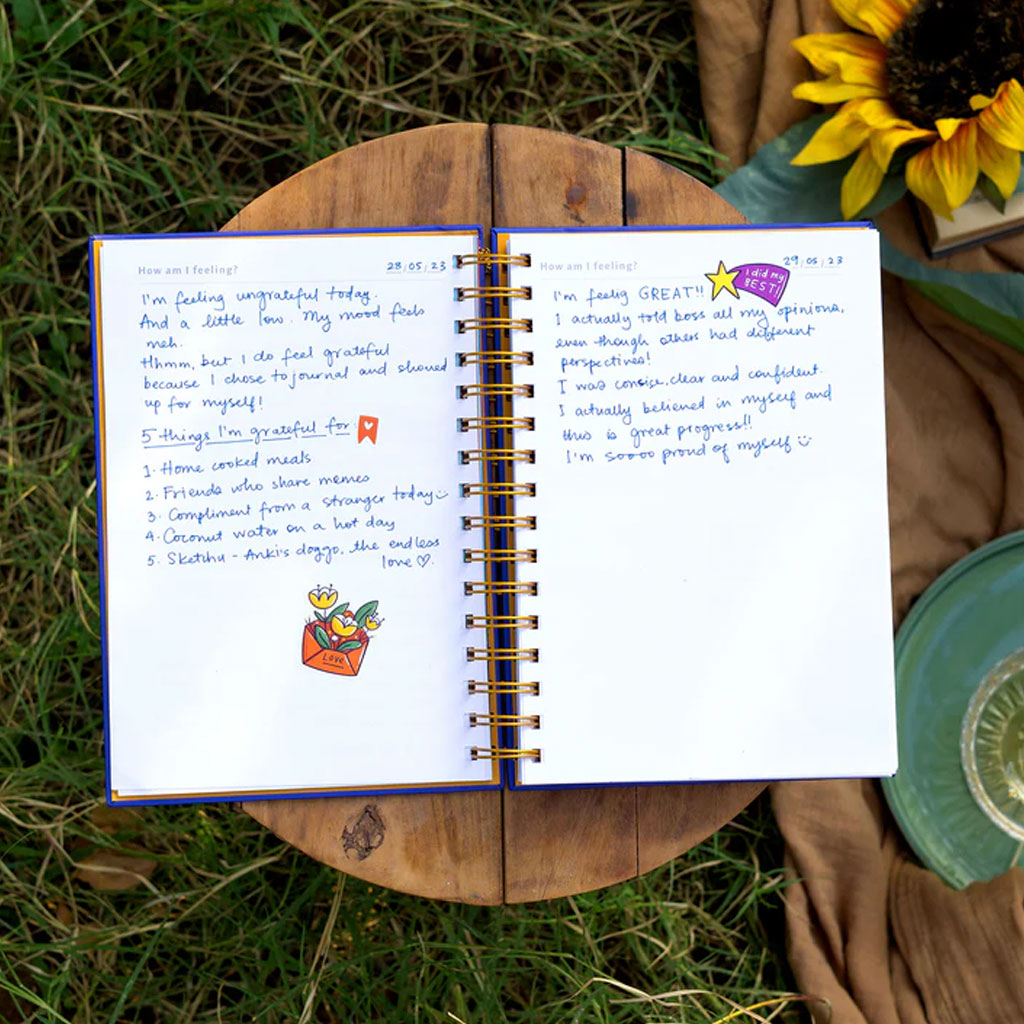 How am I feeling?
28/05/23
I'm feeling ungrateful today.
And a little low. My mood feels
meh.
Hhmm, but I do feel grateful
because I chose to journal and showed
up for myself!
5 things I'm grateful for
1. Home cooked meals
2. Friends who share memes
3. Compliment from a stranger today
4. Coconut water on a hot day
5. Sketchu - Anki's doggo, the endless
love ♡.
Love
How am I feeling?
29/05/23
I did my
BEST!
I'm feelig GREAT!!
I actually told boss all my opinions,
even though others had different
perspectives!
I was consise, clear and confident.
I actually believed in myself and
this is great progress!!
I'm soooo proud of myself